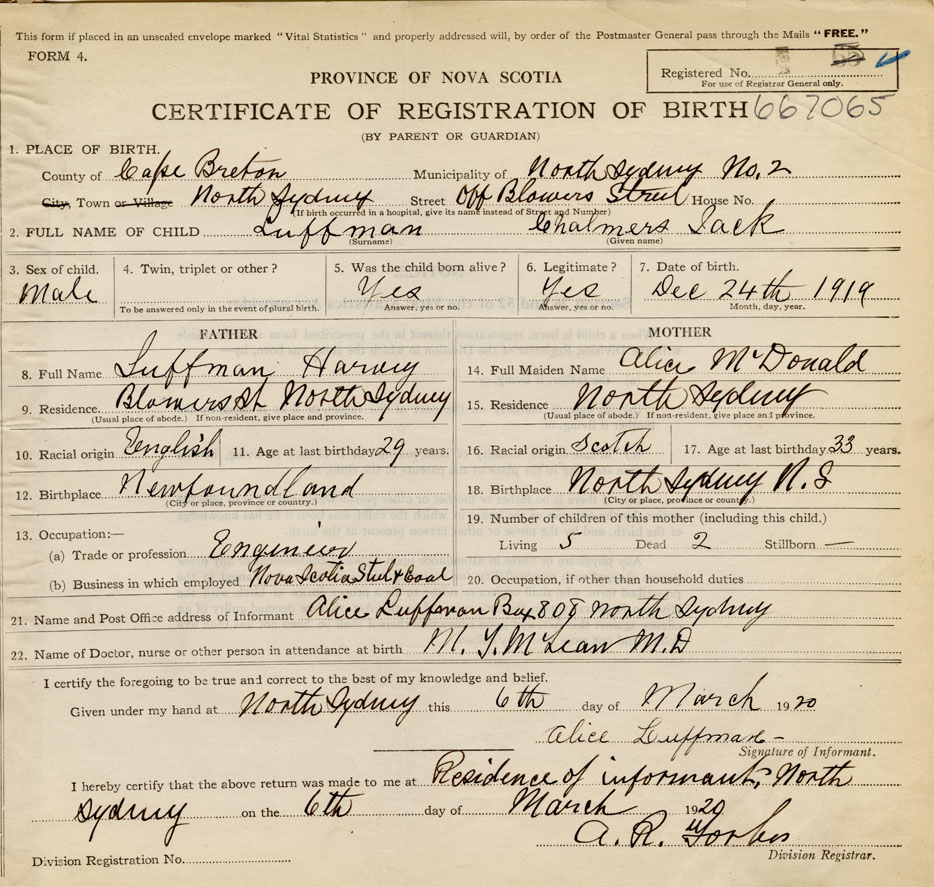 This form if placed in an unsealed envelope marked "Vital Statistics" and properly addressed will, by order of the Postmaster General pass through the Mails "FREE."
FORM 4.
Registered No.
For use of Registrar General only.
PROVINCE OF NOVA SCOTIA
CERTIFICATE OF REGISTRATION OF BIRTH 667065
(BY PARENT OR GUARDIAN)
1. PLACE OF BIRTH.
County of Cape Breton Municipality of North Sydney No. 2
City, Town or Village North Sydney Street Off Blowers Street House No.
(If birth occurred in a hospital, give its name instead of Street and Number)
2. FULL NAME OF CHILD Luffman Chalmers Jack
(Surname) (Given name)
3. Sex of child. 4. Twin, triplet or other? 5. Was the child born alive? 6. Legitimate? 7. Date of birth.
Male Yes Yes Dec 24th 1919
To be answered only in the event of plural birth. Answer, yes or no. Answer, yes or no. Month, day, year.
FATHER
8. Full Name Luffman Harvey
9. Residence. Blowers St North Sydney
(Usual place of abode.) If non-resident, give place and province.
10. Racial origin English 11. Age at last birthday 29 years.
12. Birthplace Newfoundland
(City or place, province or country.)
13. Occupation:—
(a) Trade or profession Engineer
(b) Business in which employed Nova Scotia Steel & Coal
MOTHER
14. Full Maiden Name Alice McDonald
15. Residence North Sydney
(Usual place of abode.) If non-resident, give place and province.
16. Racial origin Scotch 17. Age at last birthday 33 years.
18. Birthplace North Sydney N.S
(City or place, province or country.)
19. Number of children of this mother (including this child.)
Living 5 Dead 2 Stillborn —
20. Occupation, if other than household duties
21. Name and Post Office address of Informant Alice Luffman Box 808 North Sydney
22. Name of Doctor, nurse or other person in attendance at birth M. T. McLean M.D
I certify the foregoing to be true and correct to the best of my knowledge and belief.
Given under my hand at North Sydney this 6th day of March 1920
Alice Luffman
Signature of Informant.
I hereby certify that the above return was made to me at Residence of informant, North
Sydney on the 6th day of March 1920
A. R. Forbes
Division Registration No. Division Registrar.